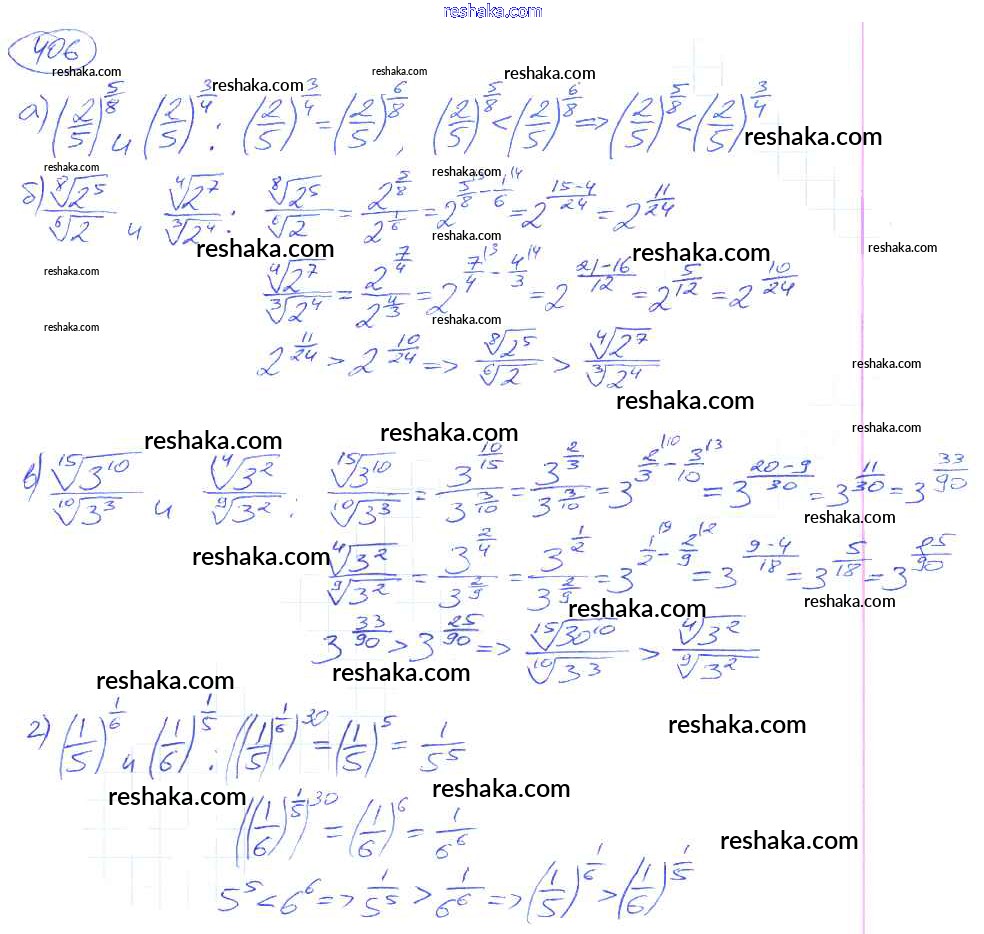 reshaka.com
406
reshaka.com reshaka.com reshaka.com reshaka.com
а) (2/5)^(5/8) и (2/5)^(3/4) : (2/5)^(3/4) = (2/5)^(6/8), (2/5)^(5/8) < (2/5)^(6/8) => (2/5)^(5/8) < (2/5)^(3/4)
reshaka.com
reshaka.com reshaka.com
б) ⁸√2⁵/⁶√2 и ⁴√2⁷/³√2⁴ : ⁸√2⁵/⁶√2 = 2^(5/8)/2^(1/6) = 2^(5/8|³ - 1/6|⁴) = 2^((15-4)/24) = 2^(11/24)
reshaka.com reshaka.com reshaka.com reshaka.com
reshaka.com
⁴√2⁷/³√2⁴ = 2^(7/4)/2^(4/3) = 2^(7/4|³ - 4/3|⁴) = 2^((21-16)/12) = 2^(5/12) = 2^(10/24)
reshaka.com reshaka.com
2^(11/24) > 2^(10/24) => ⁸√2⁵/⁶√2 > ⁴√2⁷/³√2⁴
reshaka.com
reshaka.com
reshaka.com reshaka.com reshaka.com
в) ¹⁵√3¹⁰/¹⁰√3³ и ⁴√3²/⁹√3² : ¹⁵√3¹⁰/¹⁰√3³ = 3^(10/15)/3^(3/10) = 3^(2/3)/3^(3/10) = 3^(2/3|¹⁰ - 3/10|³) = 3^((20-9)/30) = 3^(11/30) = 3^(33/90)
reshaka.com
reshaka.com
⁴√3²/⁹√3² = 3^(2/4)/3^(2/9) = 3^(1/2)/3^(2/9) = 3^(1/2|⁹ - 2/9|²) = 3^((9-4)/18) = 3^(5/18) = 3^(25/90)
reshaka.com reshaka.com
3^(33/90) > 3^(25/90) => ¹⁵√30¹⁰/¹⁰√3³ > ⁴√3²/⁹√3²
reshaka.com reshaka.com
reshaka.com
г) (1/5)^(1/6) и (1/6)^(1/5) : ((1/5)^(1/6))^30 = (1/5)^5 = 1/5^5
reshaka.com reshaka.com
((1/6)^(1/5))^30 = (1/6)^6 = 1/6^6
reshaka.com
5^5 < 6^6 => 1/5^5 > 1/6^6 => (1/5)^(1/6) > (1/6)^(1/5)